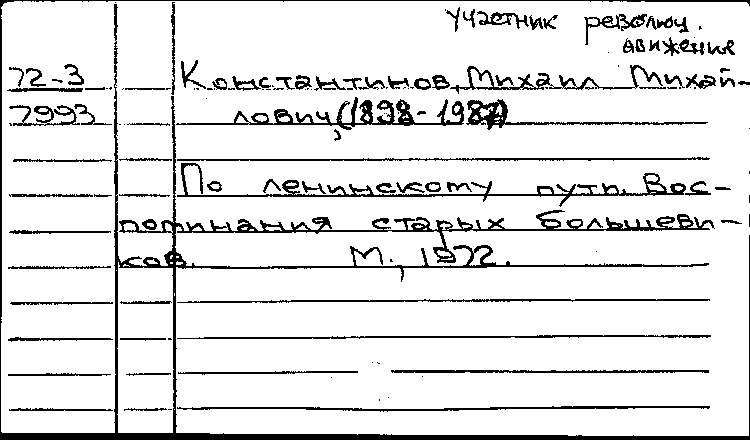 участник революц.
движения
72-3
7993
Константинов, Михаил Михай-
лович, (1898-1987)
По ленинскому пути. Вос-
поминания старых большеви-
ков. М., 1972.